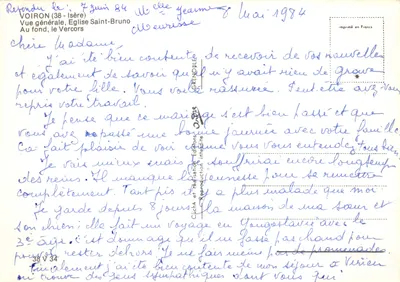 Répondu le: 7 juin 84 Melle Jeanne
Meunisse
Mai 1984
VOIRON (38 - Isère)
Vue générale, Eglise Saint-Bruno
Au fond, le Vercors
reproduit en France
Chère Madame,
J'ai été bien contente de recevoir de vos nouvelles
et également de savoir qu'il n'y avait rien de grave
pour votre fille. Vous voilà rassurée. Peut-être avez-vous
repris votre travail.
Je pense que ce mariage s'est bien passé et que
vous avez passé une bonne journée avec votre famille
Ça fait plaisir de voir comme vous vous entendez
Je vais mieux mais souffrirai encore longtemps
des reins. Il manque la jeunesse pour se remettre
complètement. Tant pis a plus malade que moi
Je garde depuis 8 jours la maison de ma sœur et
son chien: elle fait un voyage en Yougoslavie avec le
3e âge. C'est dommage qu'il ne fasse pas chaud pour
pouvoir rester dehors. Je ne fais même pas de promenades
Finalement j'ai été bien contente de mon séjour à
on trouve des gens sympathiques dont vous
38 V 38